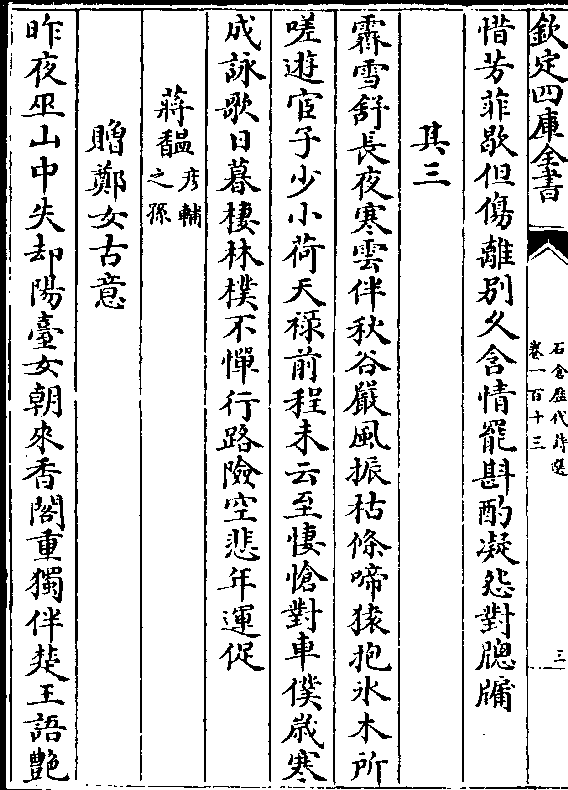 欽定四庫全書
石倉歷代詩選
卷一百十三
三
惜芳菲歇但傷離別久含情罷斟酌凝怨對牕牖
其三
霽雪舒長夜寒雲伴秋谷嚴風振枯條啼猿抱氷木所
嗟遊宦子少小荷天祿前程未云至悽愴對車僕歲寒
成詠歌日暮棲林樸不憚行路險空悲年運促
蔣馧彦輔
之孫
贈鄭女古意
昨夜巫山中失却陽臺女朝來香閣重獨伴楚王語艶